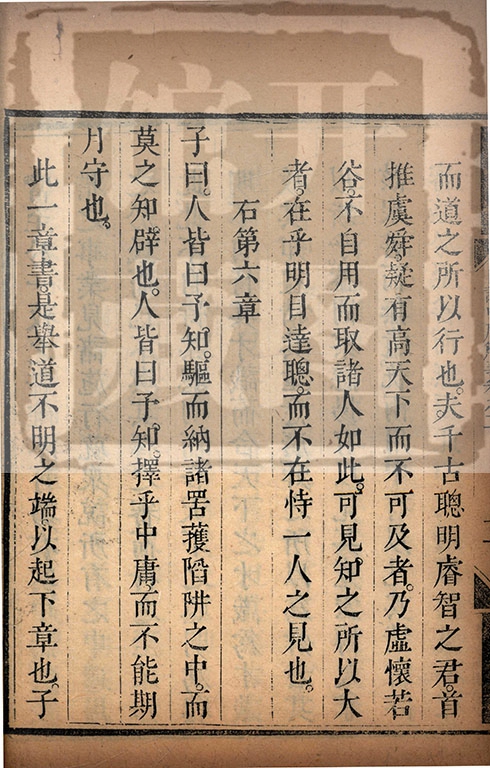 而道之所以行也。夫千古聰明睿智之君。首
推虞舜。疑有高天下而不可及者。乃虛懷若
谷。不自用而取諸人如此。可見知之所以大
者。在乎明目達聰。而不在恃一人之見也。
右第六章
子曰。人皆曰予知。驅而納諸罟擭陷阱之中。而
莫之知辟也。人皆曰予知。擇乎中庸。而不能期
月守也。
此一章書是舉道不明之端。以起下章也。子